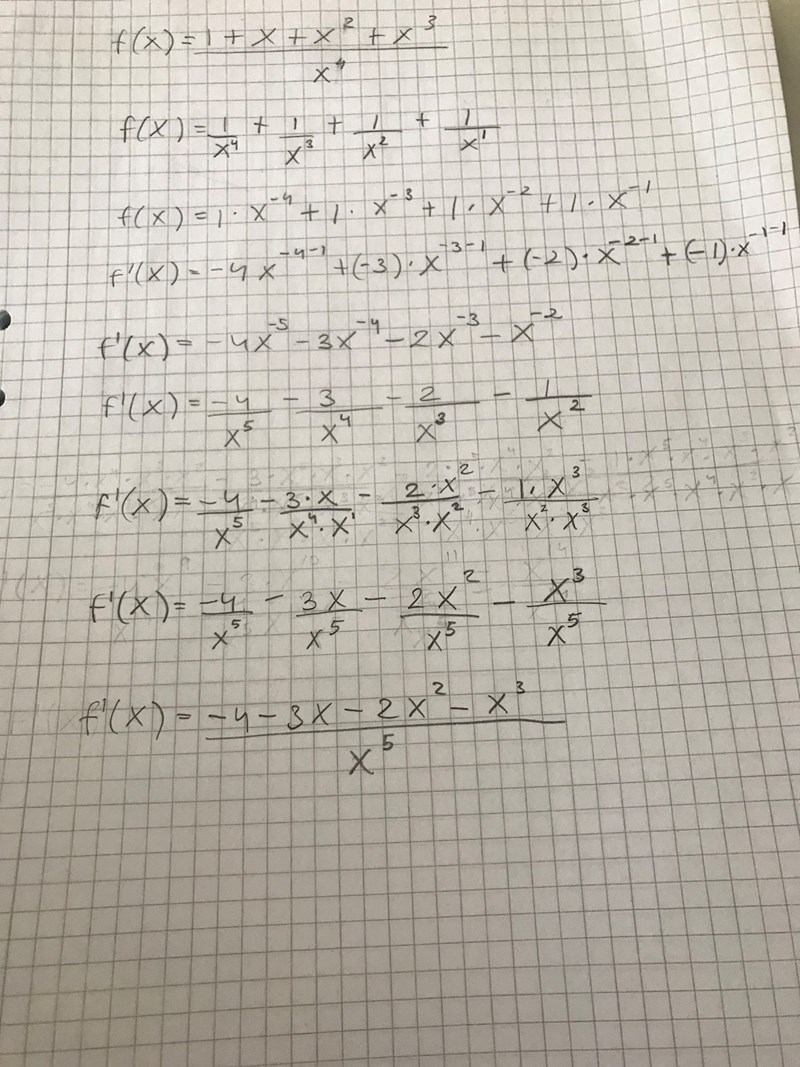 f(x) = (1 + x + x² + x³)/x⁴
f(x) = 1/x⁴ + 1/x³ + 1/x² + 1/x¹
f(x) = 1 · x⁻⁴ + 1 · x⁻³ + 1 · x⁻² + 1 · x⁻¹
f'(x) = -4x⁻⁴⁻¹ + (-3) · x⁻³⁻¹ + (-2) · x⁻²⁻¹ + (-1) · x⁻¹⁻¹
f'(x) = -4x⁻⁵ - 3x⁻⁴ - 2x⁻³ - x⁻²
f'(x) = -4/x⁵ - 3/x⁴ - 2/x³ - 1/x²
f'(x) = -4/x⁵ - (3·x)/(x⁴·x¹) - (2·x²)/(x³·x²) - (1·x³)/(x²·x³)
f'(x) = -4/x⁵ - 3x/x⁵ - 2x²/x⁵ - x³/x⁵
f'(x) = (-4 - 3x - 2x² - x³)/x⁵